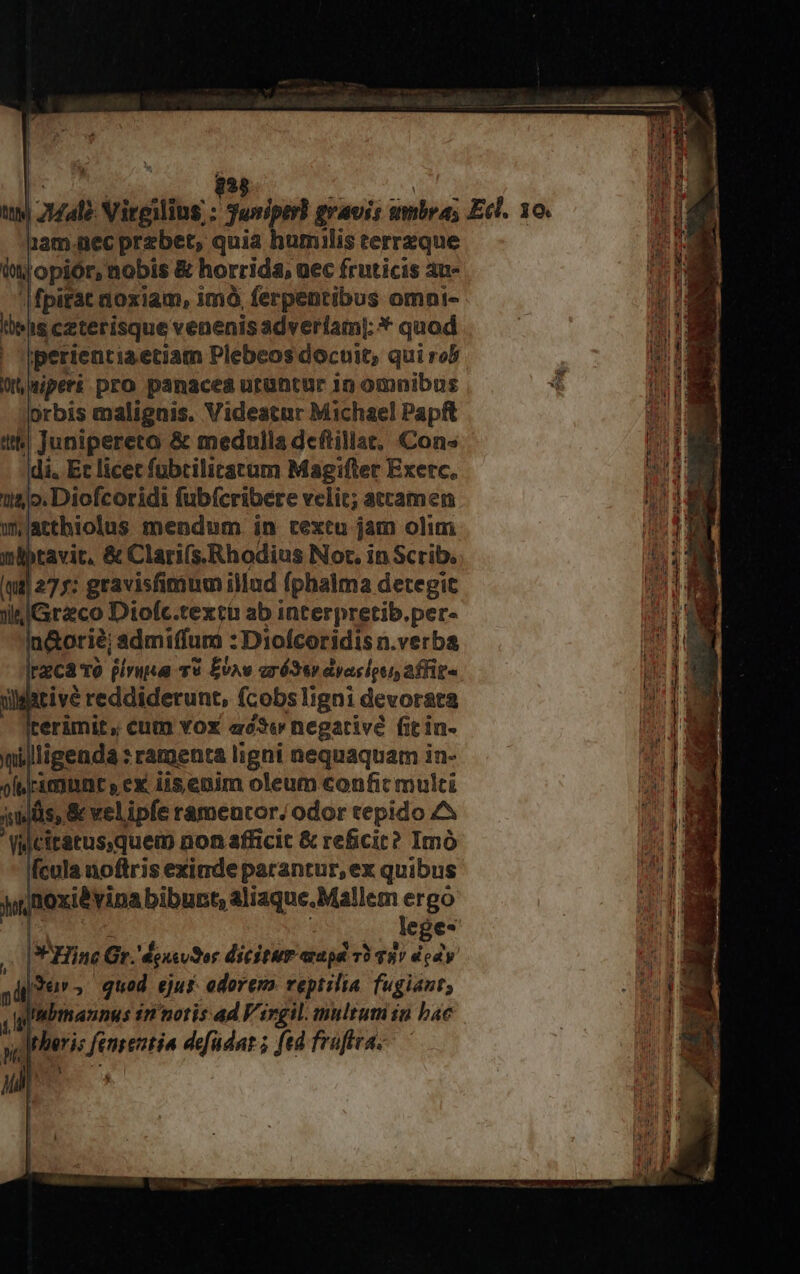 Malè Virgilius: Juniperi gravis umbra; Ecl. 10.
nam nec præbet, quia humilis terræque
opiór, nobis & horrida, nec fruticis au-
spirat noxiam, imò, serpentibus omni-
cæterisque venenis adversam|: * quod
perientia etiam Plebeos docuit, qui rob
niperi pro panacea utuntur in omnibus
orbis malignis. Videatur Michael Papst
Junipereto & medulla destillat. Con-
di. Et licet subtilitatum Magister Exerc.
o. Dioscoridi subscribere velit; attamen
atthiolus mendum in textu jam olim
tavit, & Clariss. Rhodius Not. in Scrib.
275: gravissimum illud sphalma detegit
Græco Diosc. textu ab interpretib. per-
admissum: Dioscoridis n. verba
affir-
ative reddiderunt, scobs ligni devorata
terimit, cum vox negativè sit in-
lligenda: ramenta ligni nequaquam in-
rimunt, ex iis enim oleum confic multi
& vel ipse ramentor, odor tepido
citatus, quem non afficit & reficit? Imò
scula nostris exinde parantur, ex quibus
noxiè vina bibunt, aliaque. Mallem ergo
lege-
* Hinc Gr. dicitur
quod ejus odorem reptilia fugiant,
mannus in notis ad Virgil. multum in hac
theris sententia desudat; sed frustra.